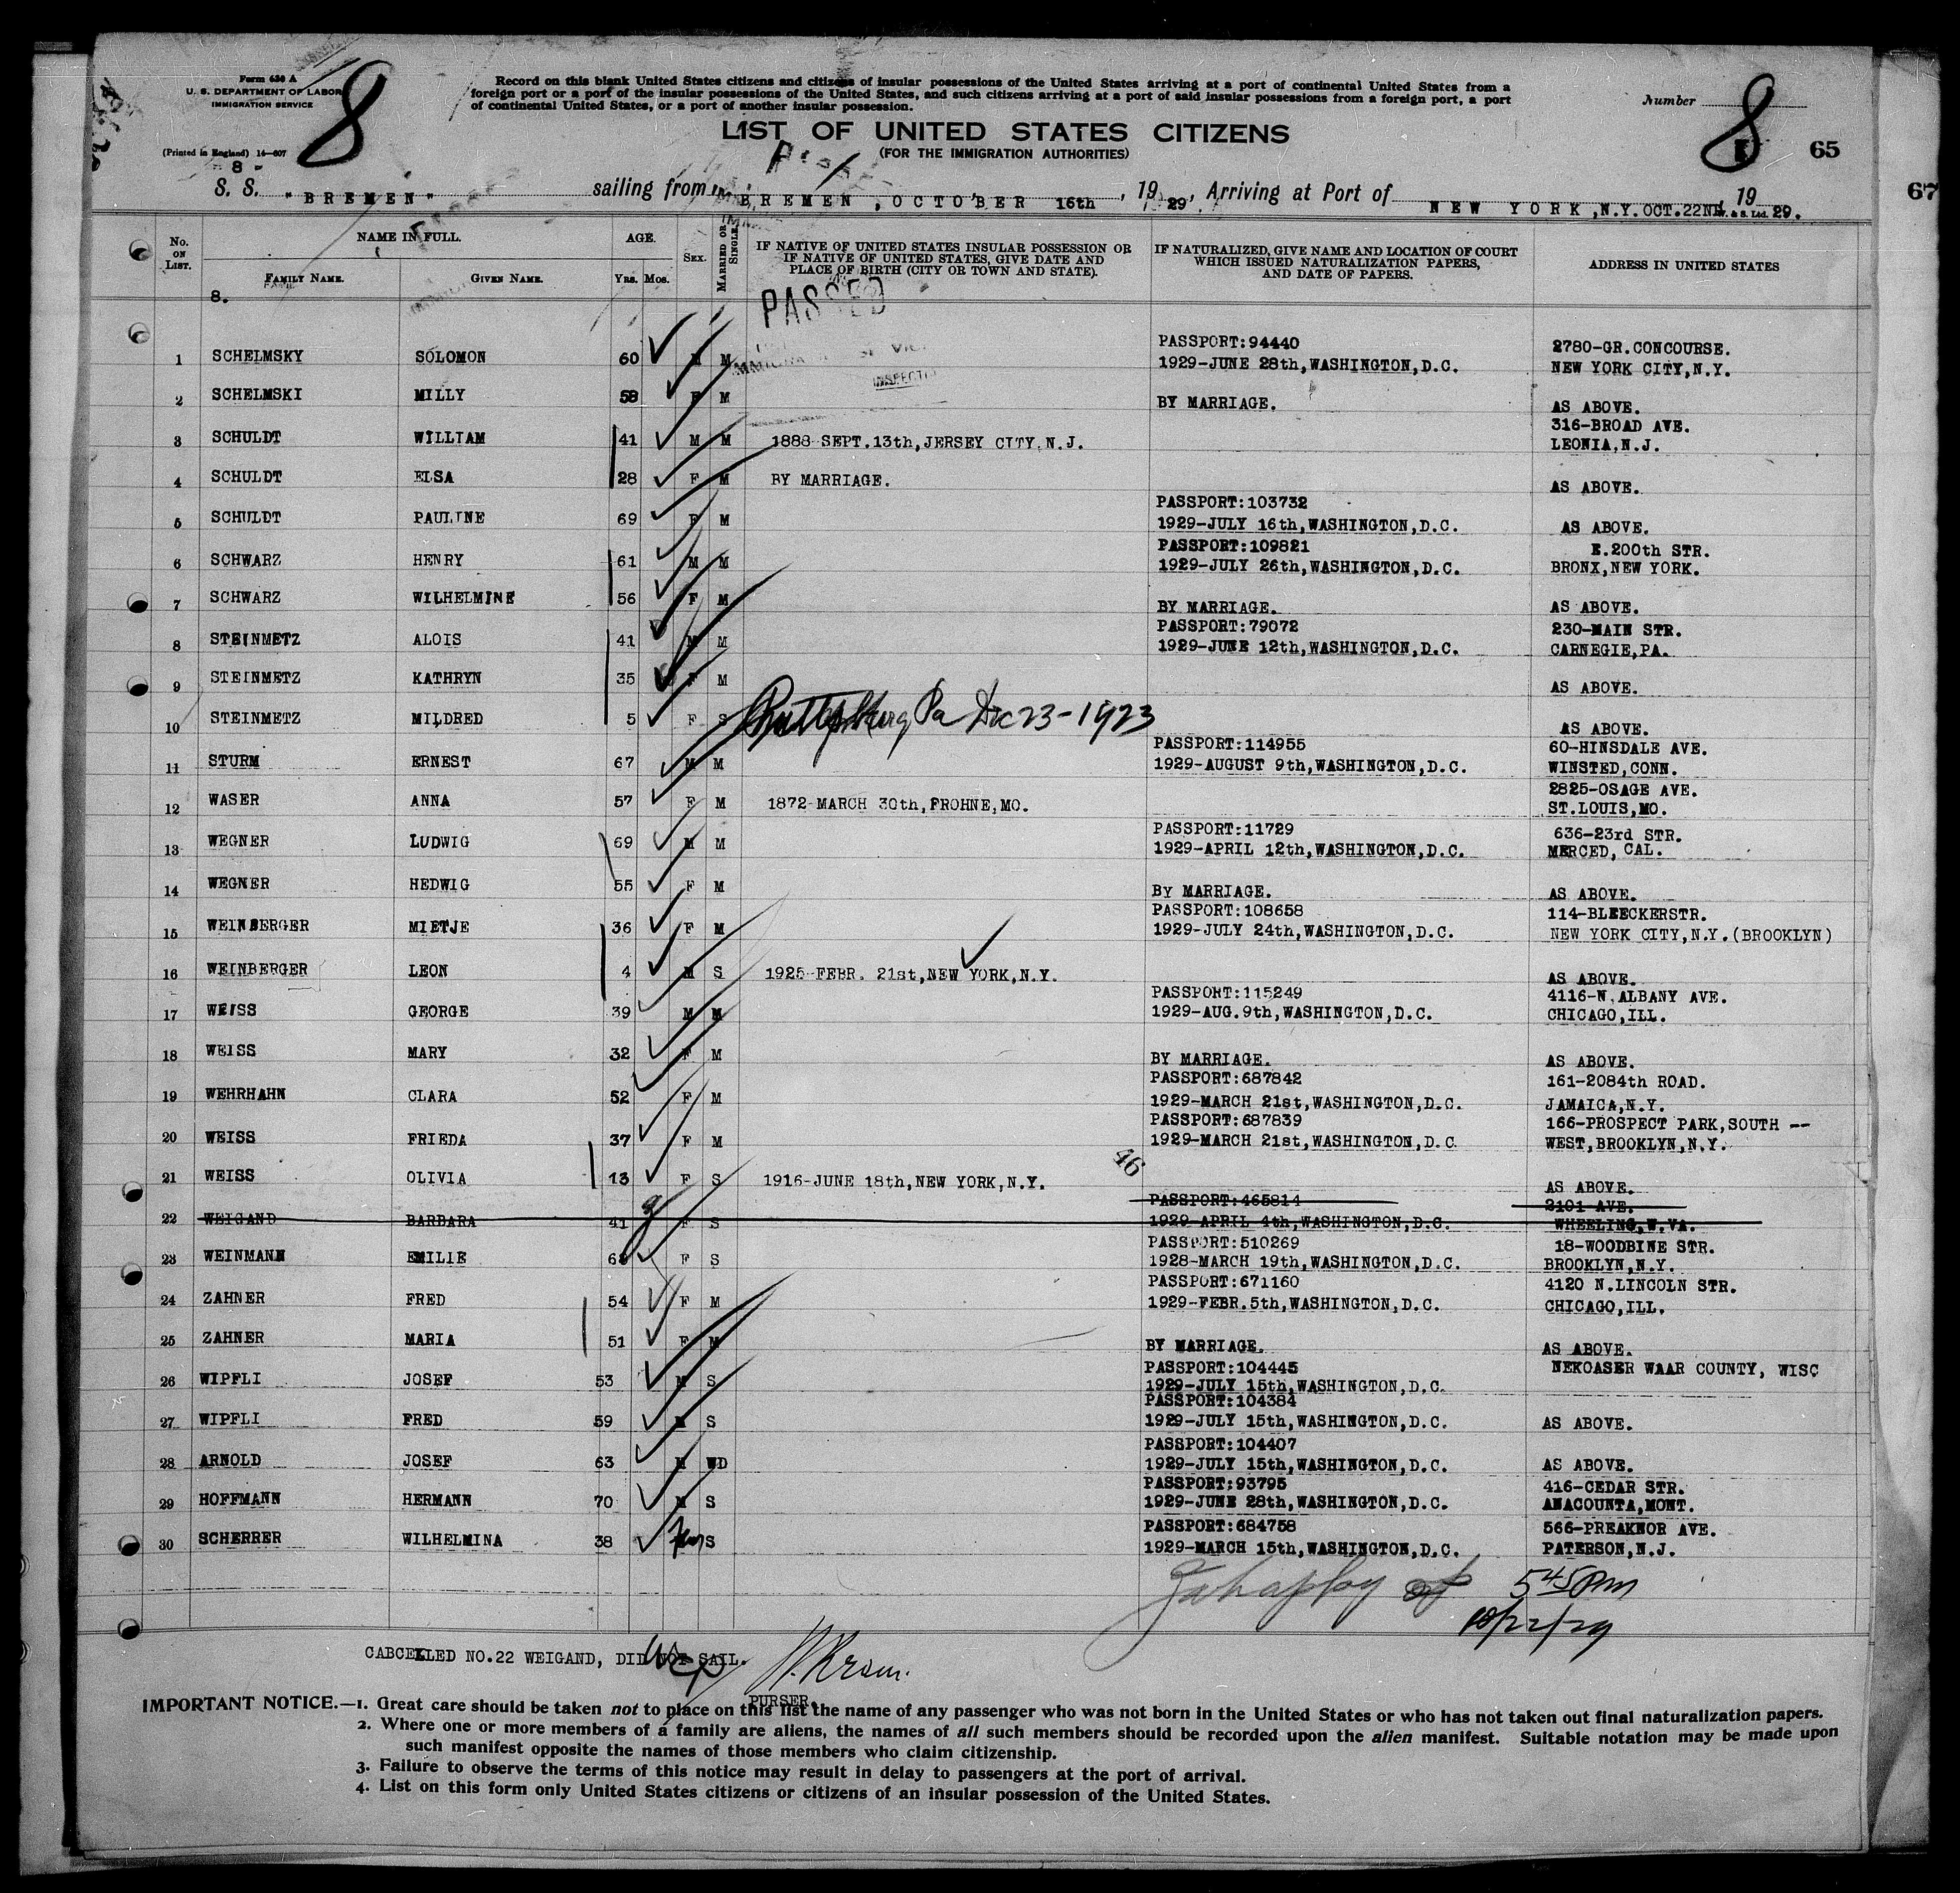 Form 630 A
U. S. DEPARTMENT OF LABOR
IMMIGRATION SERVICE
(Printed in England) 14—607
8
- 8 -
Record on this blank United States citizens and citizens of insular possessions of the United States arriving at a port of continental United States from a
foreign port or a port of the insular possessions of the United States, and such citizens arriving at a port of said insular possessions from a foreign port, a port
of continental United States, or a port of another insular possession.
LIST OF UNITED STATES CITIZENS
(FOR THE IMMIGRATION AUTHORITIES)
Number 8
65
67
S. S. "BREMEN" sailing from BREMEN, OCTOBER 16th, 1929, Arriving at Port of NEW YORK, N.Y. OCT. 22ND, 1929.
No. ON LIST. NAME IN FULL. FAMILY NAME. GIVEN NAME. AGE. Yrs. Mos. SEX. MARRIED OR SINGLE. IF NATIVE OF UNITED STATES INSULAR POSSESSION OR IF NATIVE OF UNITED STATES, GIVE DATE AND PLACE OF BIRTH (CITY OR TOWN AND STATE). IF NATURALIZED, GIVE NAME AND LOCATION OF COURT WHICH ISSUED NATURALIZATION PAPERS, AND DATE OF PAPERS. ADDRESS IN UNITED STATES
8.
PASSED
1 SCHELMSKY SOLOMON 60 M M PASSPORT:94440 1929-JUNE 28th,WASHINGTON,D.C. 2780-GR.CONCOURSE. NEW YORK CITY,N.Y.
2 SCHELMSKI MILLY 58 F M BY MARRIAGE. AS ABOVE.
3 SCHULDT WILLIAM 41 M M 1888-SEPT.13th,JERSEY CITY,N.J. 316-BROAD AVE. LEONIA,N.J.
4 SCHULDT ELSA 28 F M BY MARRIAGE. AS ABOVE.
5 SCHULDT PAULINE 69 F M PASSPORT:103732 1929-JULY 16th,WASHINGTON,D.C. AS ABOVE.
6 SCHWARZ HENRY 61 M M PASSPORT:109821 1929-JULY 26th,WASHINGTON,D.C. E.200th STR. BRONX,NEW YORK.
7 SCHWARZ WILHELMINE 56 F M BY MARRIAGE. AS ABOVE.
8 STEINMETZ ALOIS 41 M M PASSPORT:79072 1929-JUNE 12th,WASHINGTON,D.C. 230-MAIN STR. CARNEGIE,PA.
9 STEINMETZ KATHRYN 35 F M AS ABOVE.
10 STEINMETZ MILDRED 5 F S Pittsburg Pa Dec 23-1923 AS ABOVE.
11 STURM ERNEST 67 M M PASSPORT:114955 1929-AUGUST 9th,WASHINGTON,D.C. 60-HINSDALE AVE. WINSTED,CONN.
12 WASER ANNA 57 F M 1872-MARCH 30th,FROHNE,MO. 2825-OSAGE AVE. ST.LOUIS,MO.
13 WEGNER LUDWIG 69 M M PASSPORT:11729 1929-APRIL 12th,WASHINGTON,D.C. 636-23rd STR. MERCED, CAL.
14 WEGNER HEDWIG 55 F M BY MARRIAGE. AS ABOVE.
15 WEINBERGER MIETJE 36 F M PASSPORT:108658 1929-JULY 24th,WASHINGTON,D.C. 114-BLEECKERSTR. NEW YORK CITY,N.Y.(BROOKLYN)
16 WEINBERGER LEON 4 M S 1925-FEBR. 21st,NEW YORK,N.Y. AS ABOVE.
17 WEISS GEORGE 39 M M PASSPORT:115249 1929-AUG.9th,WASHINGTON,D.C. 4116-N.ALBANY AVE. CHICAGO,ILL.
18 WEISS MARY 32 F M BY MARRIAGE. AS ABOVE.
19 WEHRHAHN CLARA 52 F M PASSPORT:687842 1929-MARCH 21st,WASHINGTON,D.C. 161-2084th ROAD. JAMAICA,N.Y.
20 WEISS FRIEDA 37 F M PASSPORT:687839 1929-MARCH 21st,WASHINGTON,D.C 166-PROSPECT PARK,SOUTH -- WEST,BROOKLYN,N.Y.
21 WEISS OLIVIA 13 F S 1916-JUNE 18th,NEW YORK,N.Y. 46 AS ABOVE.
22 WEIGAND BARBARA 41 F S PASSPORT:465814 1929-APRIL 4th,WASHINGTON,D.C. 2101-AVE. WHEELING,W.VA.
23 WEINMANN EMILIE F S PASSPORT:510269 1928-MARCH 19th,WASHINGTON,D.C. 18-WOODBINE STR. BROOKLYN,N.Y.
24 ZAHNER FRED 54 F M PASSPORT:671160 1929-FEBR.5th,WASHINGTON,D.C. 4120 N.LINCOLN STR. CHICAGO,ILL.
25 ZAHNER MARIA 51 F M BY MARRIAGE. AS ABOVE.
26 WIPFLI JOSEF 53 M S PASSPORT:104445 1929-JULY 15th,WASHINGTON,D.C. NEKOASER WAAR COUNTY, WISC
27 WIPFLI FRED 59 M S PASSPORT:104384 1929-JULY 15th,WASHINGTON,D.C. AS ABOVE.
28 ARNOLD JOSEF 63 M WD PASSPORT:104407 1929-JULY 15th,WASHINGTON,D.C. AS ABOVE.
29 HOFFMANN HERMANN 70 M S PASSPORT:93795 1929-JUNE 28th,WASHINGTON,D.C. 416-CEDAR STR. ANACOUNTA,MONT.
30 SCHERRER WILHELMINA 38 S PASSPORT:684758 1929-MARCH 15th,WASHINGTON,D.C. 566-PREAKNOR AVE. PATERSON,N.J.
5 45 PM
10/22/29
CABCELLED NO.22 WEIGAND, DID NOT SAIL.
PURSER.
IMPORTANT NOTICE.—1. Great care should be taken not to place on this list the name of any passenger who was not born in the United States or who has not taken out final naturalization papers.
2. Where one or more members of a family are aliens, the names of all such members should be recorded upon the alien manifest. Suitable notation may be made upon
such manifest opposite the names of those members who claim citizenship.
3. Failure to observe the terms of this notice may result in delay to passengers at the port of arrival.
4. List on this form only United States citizens or citizens of an insular possession of the United States.